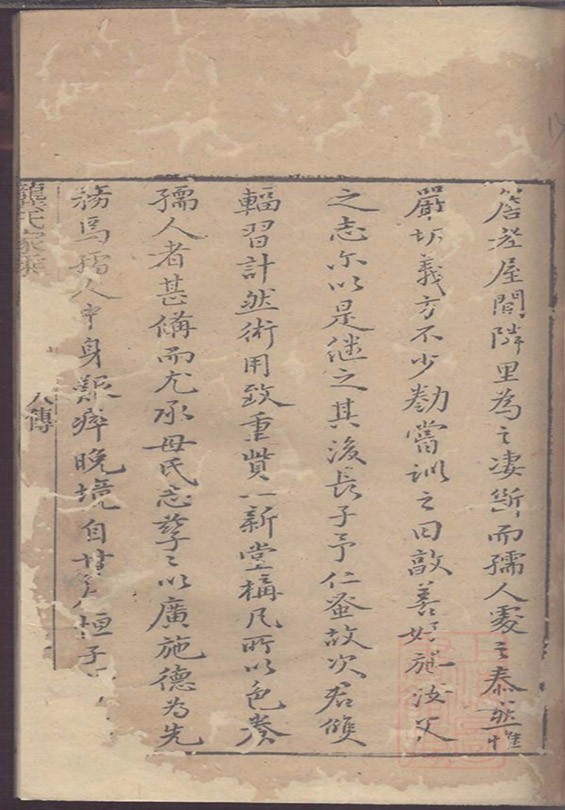 簷老屋閭隣里為之凄斷而孺人處之泰然惟
嚴切義方不少勸嘗訓之曰敦善好施汝父
之志尔以是继之其後長子予仁蚤故次君倐
輻習計然術用致重貲以新堂構凡所以色養
孺人者甚備而尤承母氏志孳之以廣施德為先
務焉孺人中身艱瘁晚境自甘 恒子
龔氏家乘
八傳